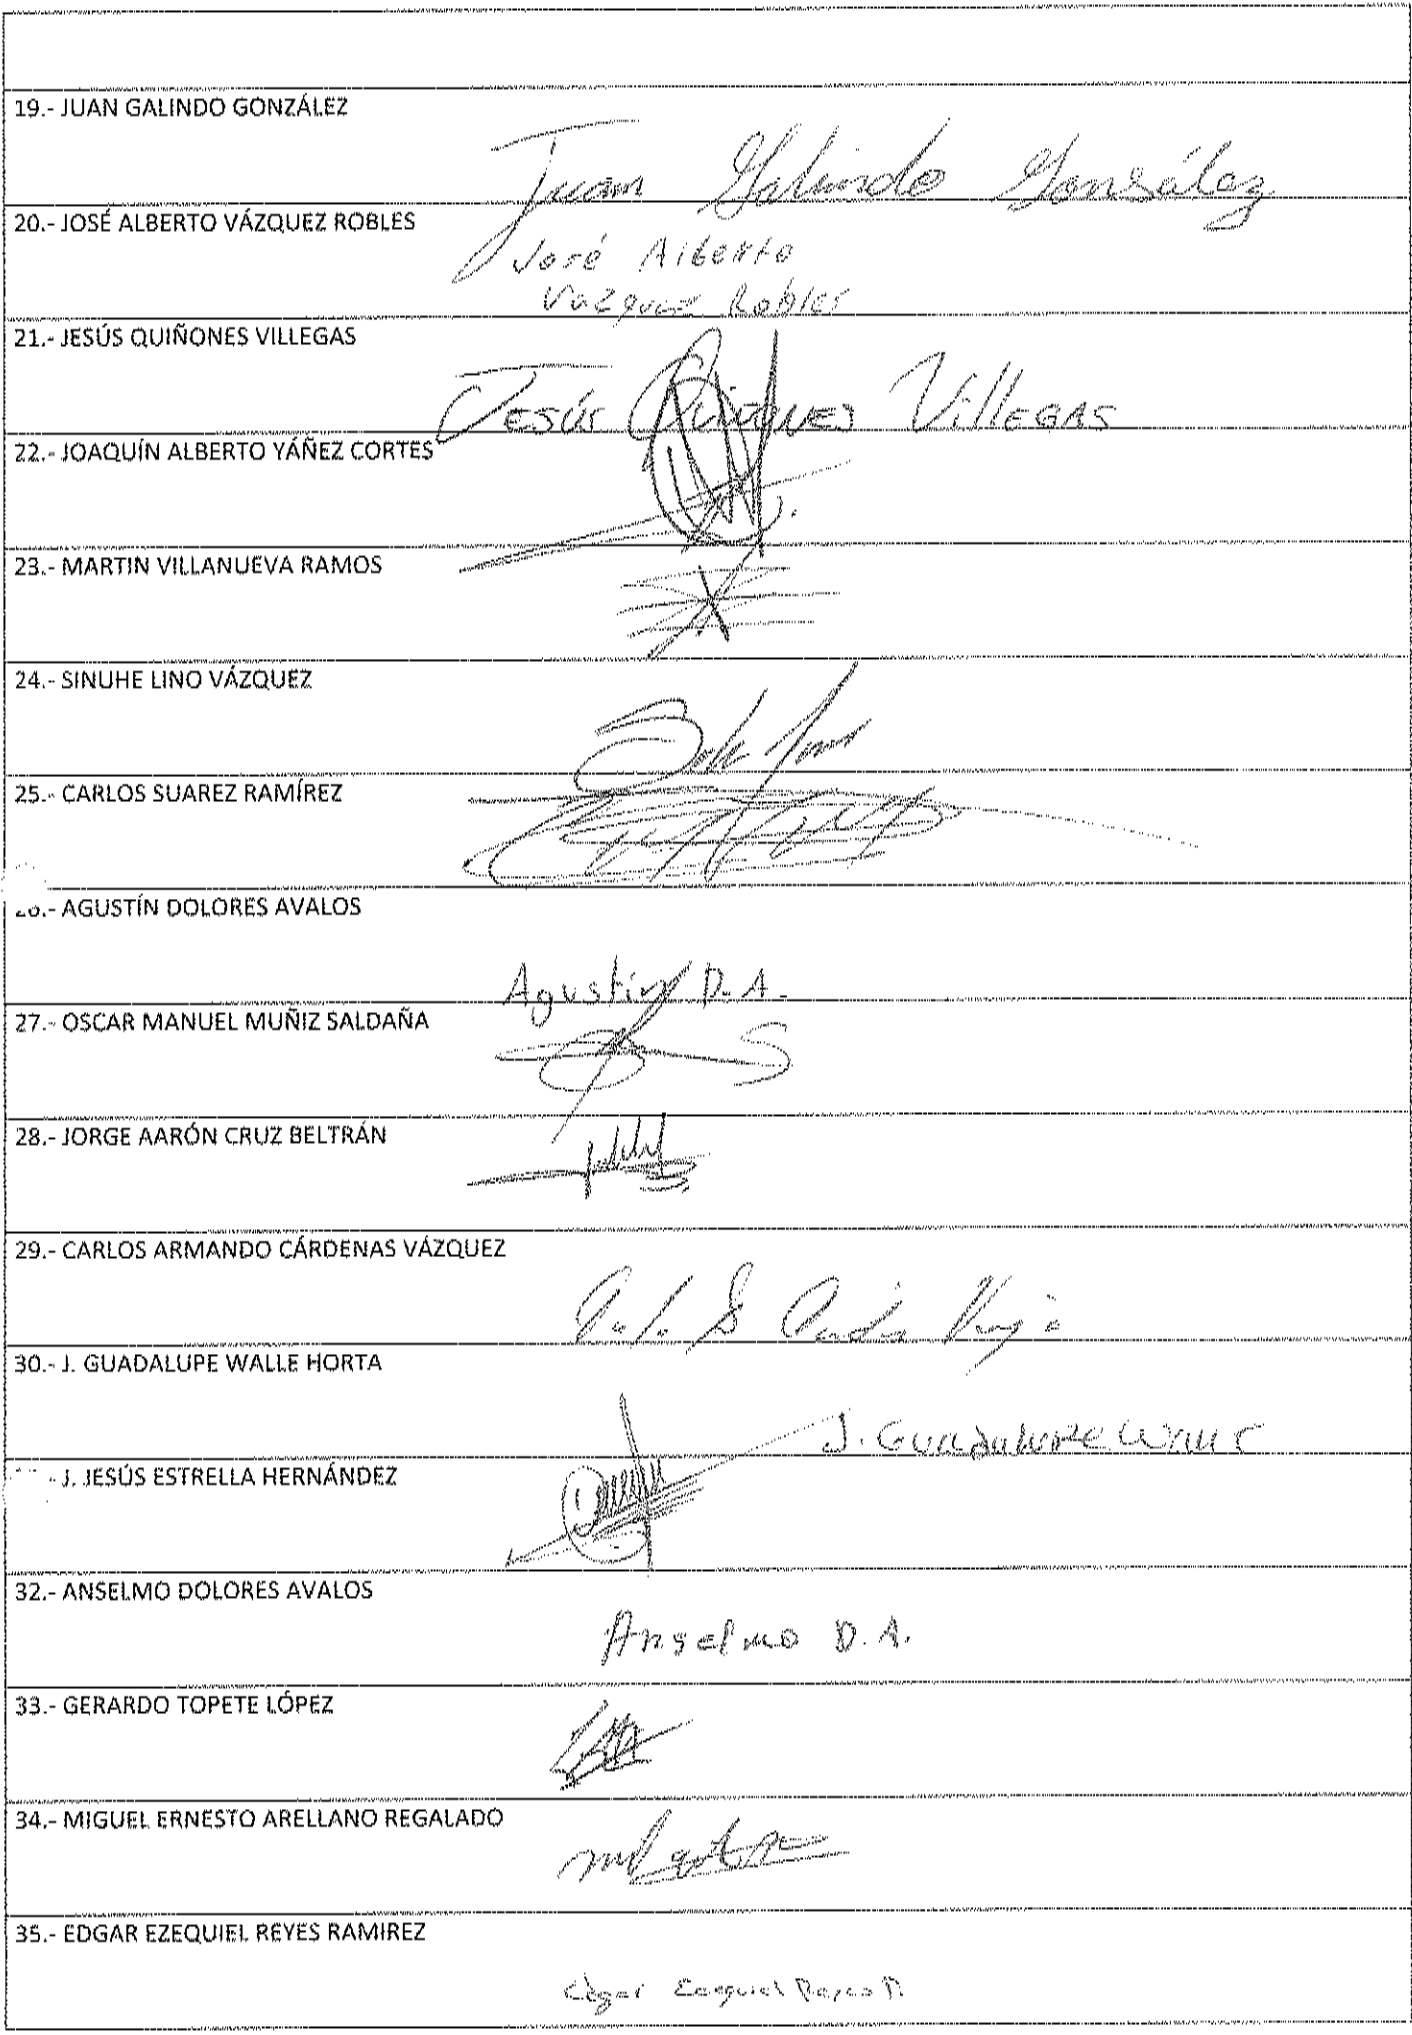 19.- JUAN GALINDO GONZÁLEZ
Juan Galindo González
20.- JOSÉ ALBERTO VÁZQUEZ ROBLES
José Alberto
Vazquez Robles
21.- JESÚS QUIÑONES VILLEGAS
JESÚS QUIÑONES VILLEGAS
22.- JOAQUÍN ALBERTO YÁÑEZ CORTES
23.- MARTIN VILLANUEVA RAMOS
24.- SINUHE LINO VÁZQUEZ
25.- CARLOS SUAREZ RAMÍREZ
.- AGUSTÍN DOLORES AVALOS
Agustin D.A.
27.- OSCAR MANUEL MUÑIZ SALDAÑA
28.- JORGE AARÓN CRUZ BELTRÁN
29.- CARLOS ARMANDO CÁRDENAS VÁZQUEZ
30.- J. GUADALUPE WALLE HORTA
J. GUADALUPE WALLE
- J. JESÚS ESTRELLA HERNÁNDEZ
32.- ANSELMO DOLORES AVALOS
Anselmo D.A.
33.- GERARDO TOPETE LÓPEZ
34.- MIGUEL ERNESTO ARELLANO REGALADO
35.- EDGAR EZEQUIEL REYES RAMIREZ
Ezequiel Reyes R.